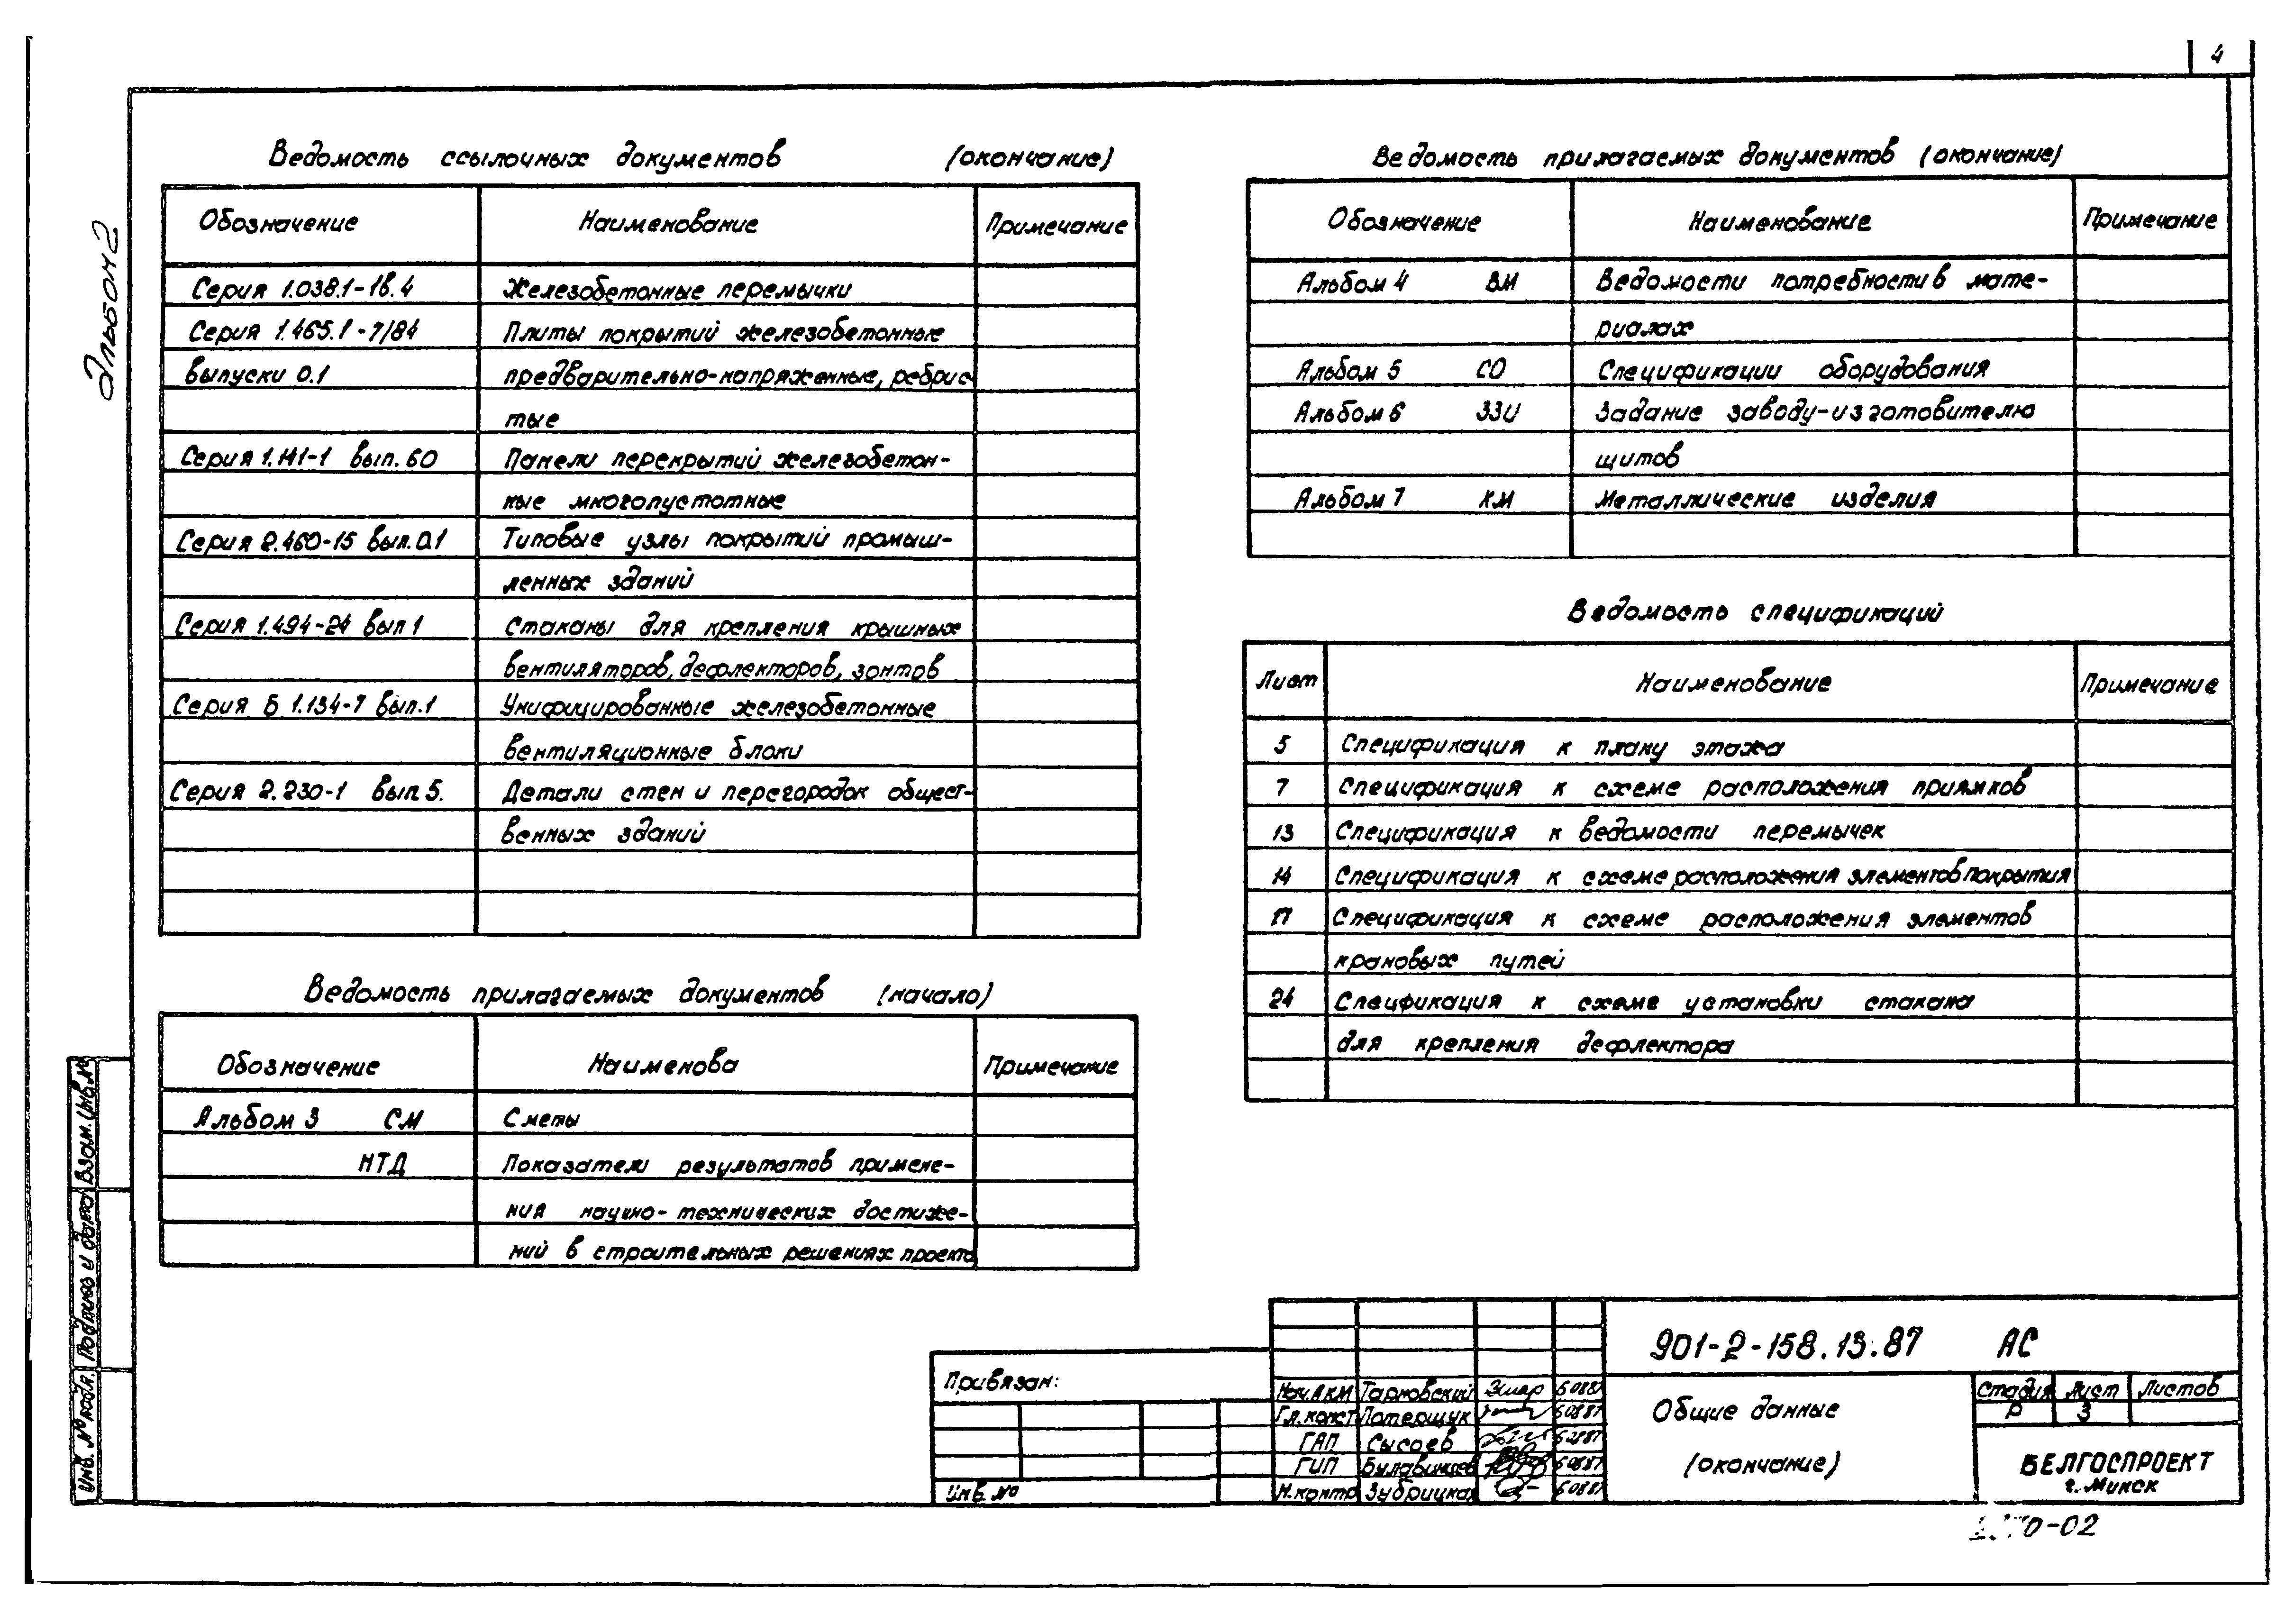 4
Альбом 2
Ведомость ссылочных документов (окончание)
Обозначение Наименование Примечание
Серия 1.038.1-1в.4 Железобетонные перемычки
Серия 1.465.1-7/84 Плиты покрытий железобетонные
выпуски 0.1 предварительно-напряженные, ребрис-
тые
Серия 1.141-1 вып.60 Панели перекрытий железобетон-
ные многопустотные
Серия 2.460-15 вып.0.1 Типовые узлы покрытий промыш-
ленных зданий
Серия 1.494-24 вып 1 Стаканы для крепления крышных
вентиляторов, дефлекторов, зонтов
Серия Б 1.134-7 вып.1 Унифицированные железобетонные
вентиляционные блоки
Серия 2.230-1 вып 5. Детали стен и перегородок общест-
венных зданий
Ведомость прилагаемых документов (начало)
Обозначение Наименова Примечание
Альбом 3 СМ Сметы
НТД Показатели результатов примене-
ния научно-технических достиже-
ний в строительных решениях проекта
Ведомость прилагаемых документов (окончание)
Обозначение Наименование Примечание
Альбом 4 ВМ Ведомости потребности в мате-
риалах
Альбом 5 СО Спецификации оборудования
Альбом 6 ЗЗИ Задание заводу-изготовителю
щитов
Альбом 7 КМ Металлические изделия
Ведомость спецификаций
Лист Наименование Примечание
5 Спецификация к плану этажа
7 Спецификация к схеме расположения приямков
13 Спецификация к ведомости перемычек
14 Спецификация к схеме расположения элементов покрытия
17 Спецификация к схеме расположения элементов
крановых путей
24 Спецификация к схеме установки стакана
для крепления дефлектора
Взам. инв.№
Подпись и дата
Инв. № подл.
Привязан:
Инв. №
Нач.АКМ Тарновский
Гл.конст Потерщук
ГАП Сысоев
ГИП Булавинцев
Н.контр Зубрицкая
901-2-158.13.87 АС
Общие данные
(окончание)
Стадия Лист Листов
Р 3
БЕЛГОСПРОЕКТ
г. Минск